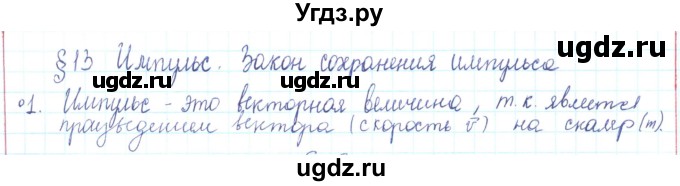 Угдз.ру
§13 Импульс. Закон сохранения импульса
ugdz.ru ugdz.ru
°1. Импульс - это векторная величина, т.к. является
произведением вектора (скорость v⃗) на скаляр (m).
ugdz.ru ugdz.ru